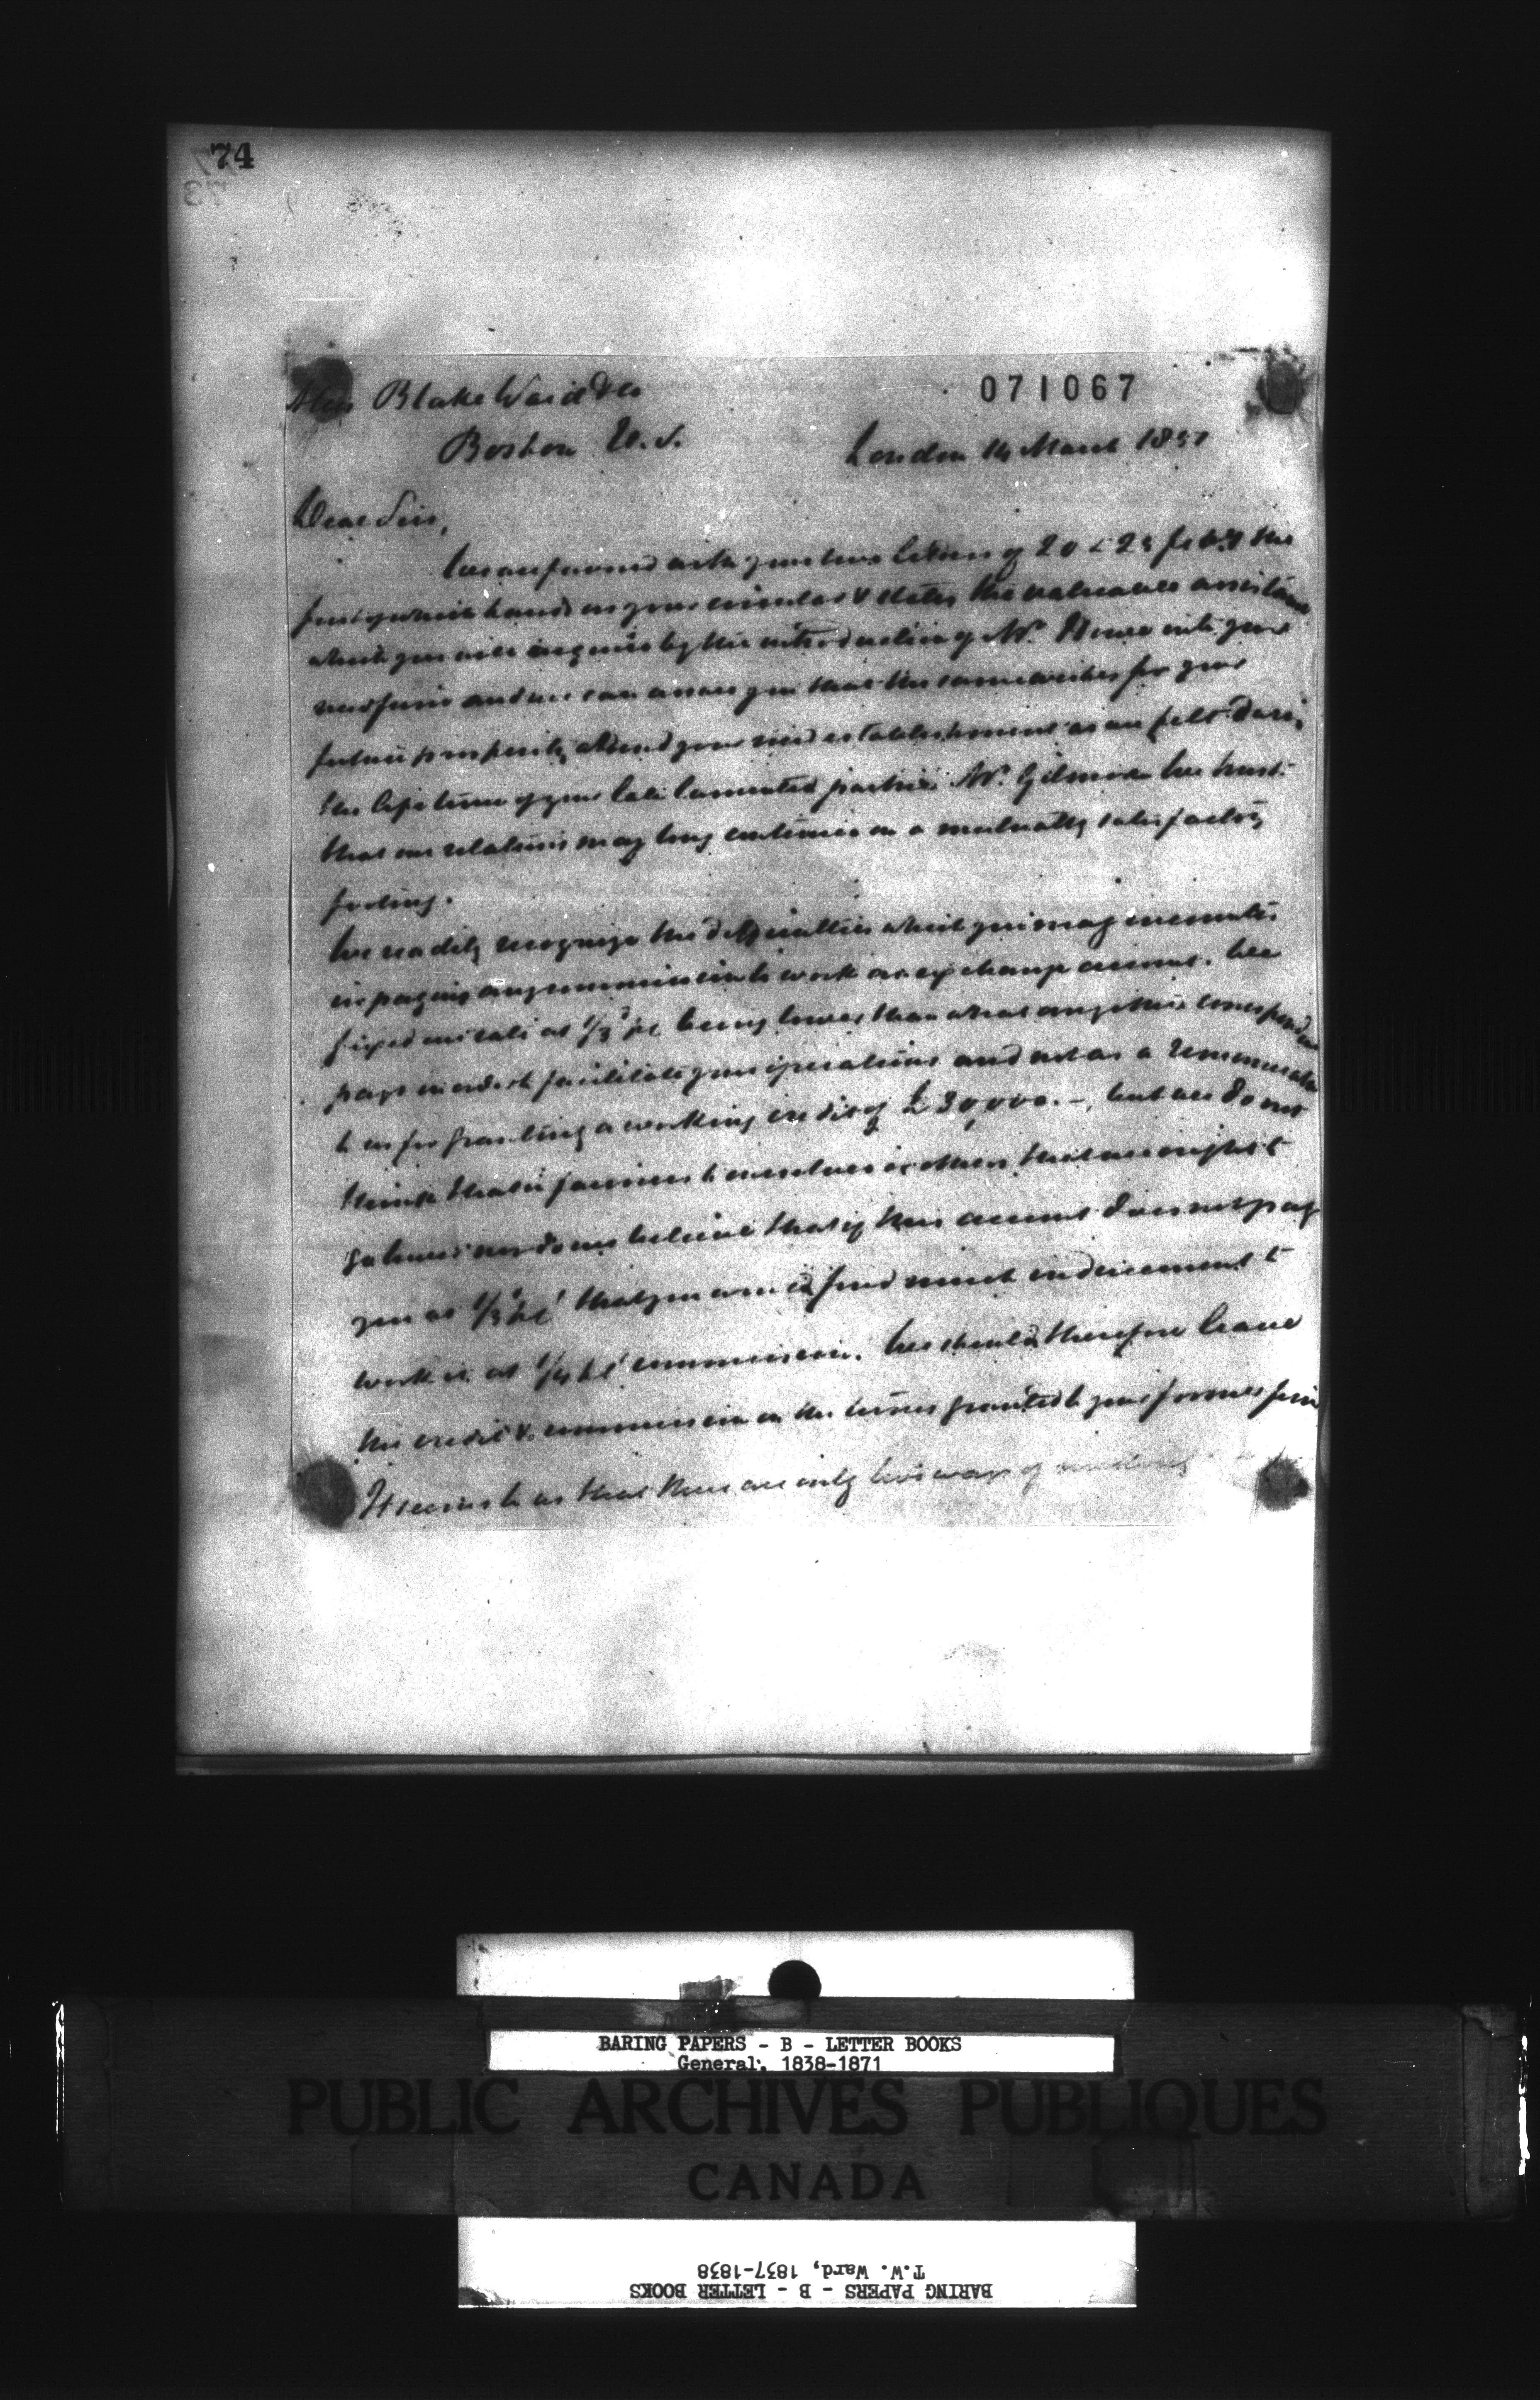 74
071067
Blake Ward & Co
Boston U.S.
London 14 March 1851
Dear Sirs,
We are favored with your two letters of 20 & 25 feby the
first of which hands us your circular & states the valuable assistance
which you will acquire by the introduction of Mr. Howe into your
new firm and we can assure you that the same wishes for your
future prosperity attend your new establishment as we felt during
the life time of your late lamented partner Mr. Gilmore. We trust
that our relations may long continue on a mutually satisfactory
footing.
We readily recognize the difficulties which you may encounter
in paying any commission to work an exchange account. We
fixed our rate at 1/3 pc being lower than what any other correspondent
pays in order to facilitate your operations and act as a remuneration
to us for granting a working credit of £30,000.-, but we do not
think that in fairness to ourselves or others that we ought to
go lower nor do we believe that if this account does not pay
you at 1/3 pc that you would find much inducement to
work it at 1/4 pc commission. We should therefore leave
the credit & commission on the terms granted to your former firm
It seems to us that there are only two ways of
BARING PAPERS - B - LETTER BOOKS
General, 1838-1871
PUBLIC ARCHIVES PUBLIQUES
CANADA
T.W. Ward, 1837-1838
BARING PAPERS - B - LETTER BOOKS